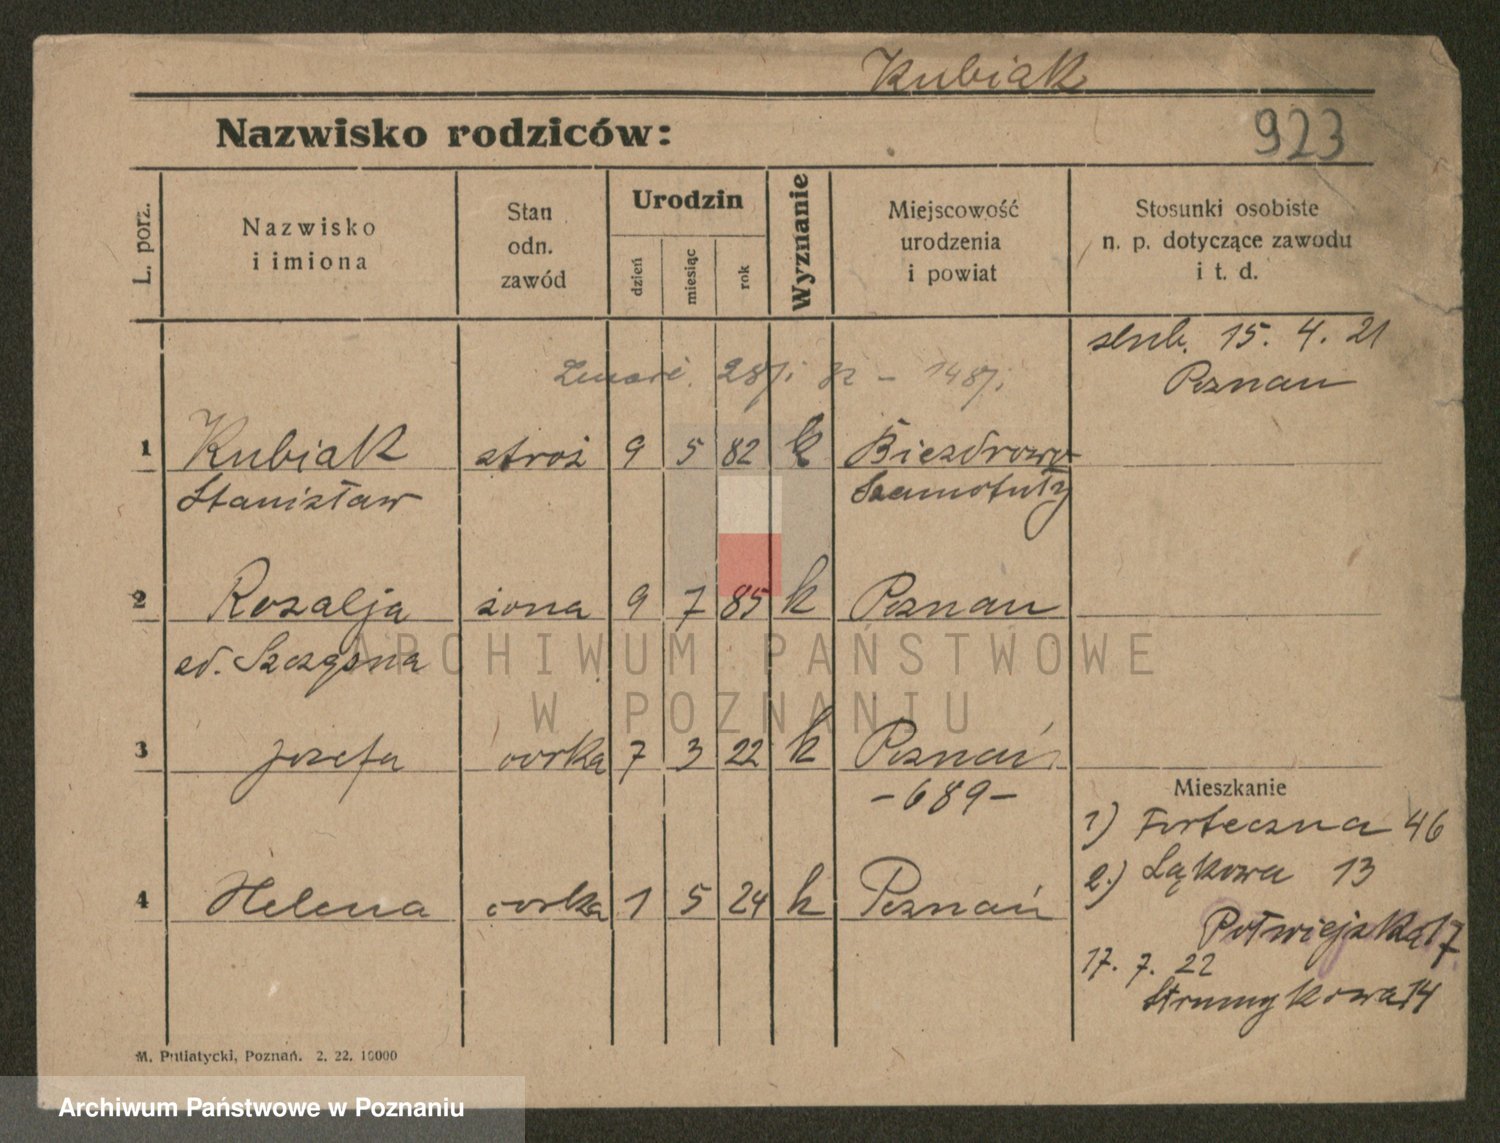 Kubiak
923
Nazwisko rodziców:
L. porz.
Nazwisko
i imiona
Stan
odn.
zawód
Urodzin
dzień
miesiąc
rok
Wyznanie
Miejscowość
urodzenia
i powiat
Stosunki osobiste
n. p. dotyczące zawodu
i t. d.
ślub. 15. 4. 21
Poznań
1 Kubiak stróż 9 5 82 k Biezdrowo
Stanisław Szamotuły
2 Rozalja żona 9 7 85 k Poznań
3 Józefa córka 7 3 22 k Poznań
- 689 -
4 Helena córka 1 5 24 k Poznań
Mieszkanie
1) Forteczna 46
2.) Łąkowa 13
Półwiejska 17
17. 7. 22
Strumykowa 14
M. Putiatycki, Poznań. 2. 22. 10000
ARCHIWUM PAŃSTWOWE
W POZNANIU
Archiwum Państwowe w Poznaniu